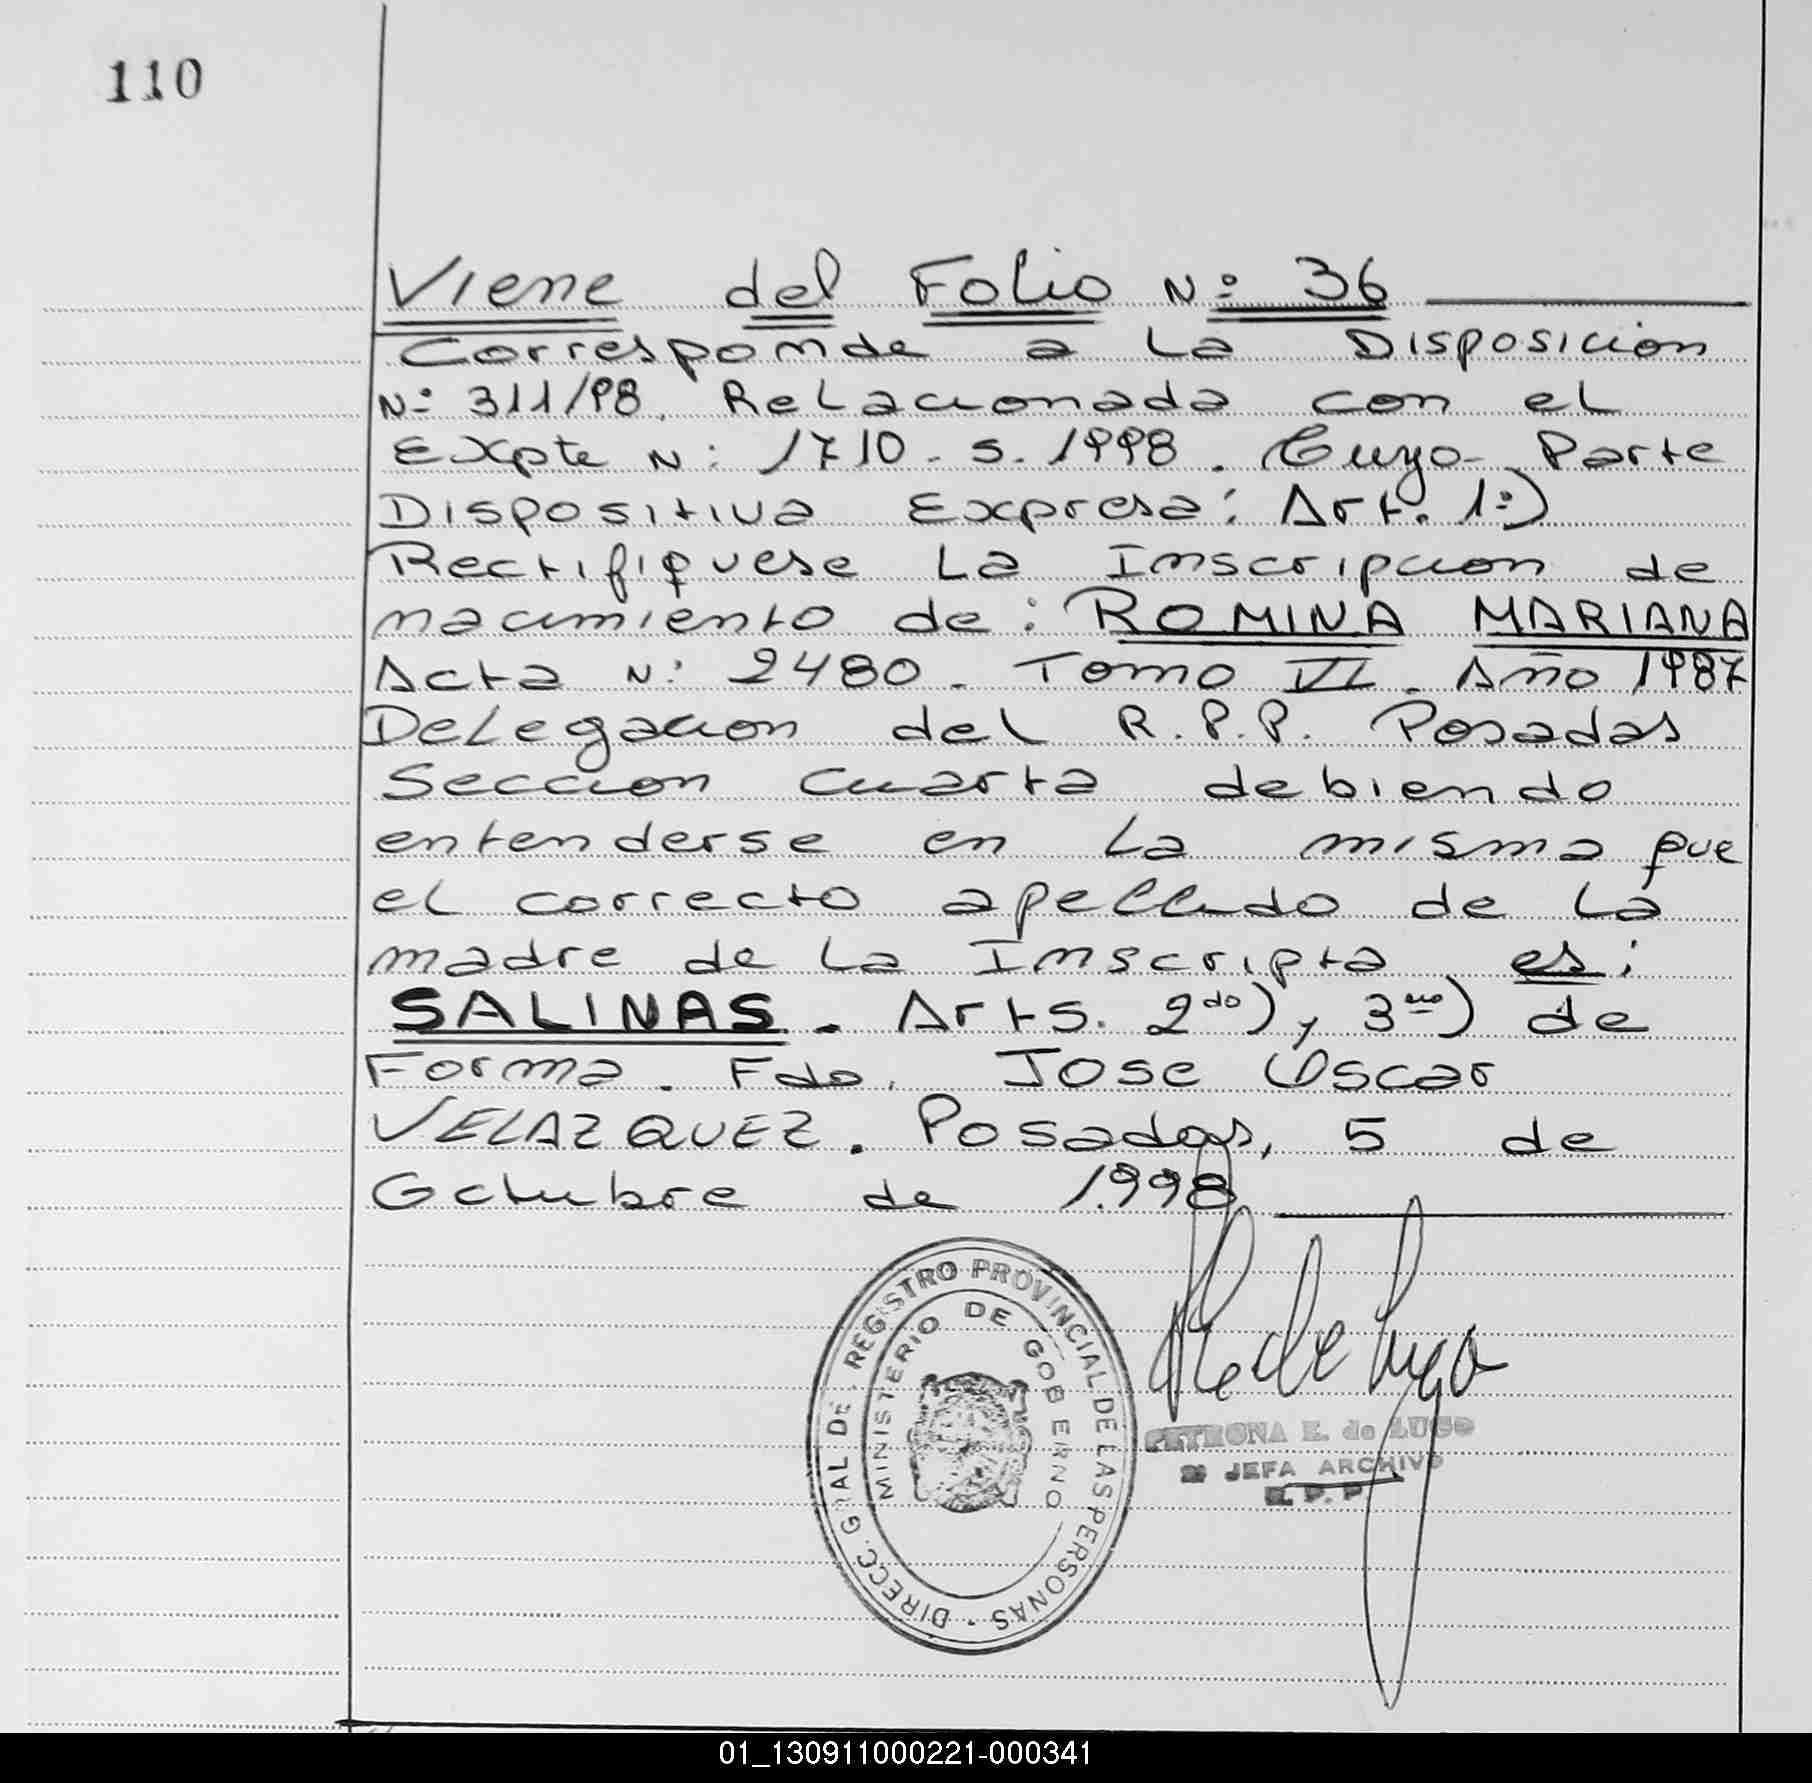 110
Viene del Folio Nº 36
Corresponde a la Disposicion
Nº 311/98. Relacionada con el
Expte Nº: 1710-S-1998. Cuyo Parte
Dispositiva Expresa: Art. 1º)
Rectifiquese la Inscripcion de
nacimiento de: ROMINA MARIANA
Acta Nº 2480 - Tomo VI. Año 1987
Delegacion del R.P.P. Posadas
Seccion cuarta debiendo
entenderse en la misma que
el correcto apellido de la
madre de la Inscripta es:
SALINAS. Arts. 2do), 3ero) de
Forma. Fdo. Jose Oscar
VELAZQUEZ. Posadas, 5 de
Octubre de 1.998
DIRECC. GRAL DE REGISTRO PROVINCIAL DE LAS PERSONAS
MINISTERIO DE GOBIERNO
PETRONA E. de LUGO
JEFA ARCHIVO
R. P. P
01_130911000221-000341